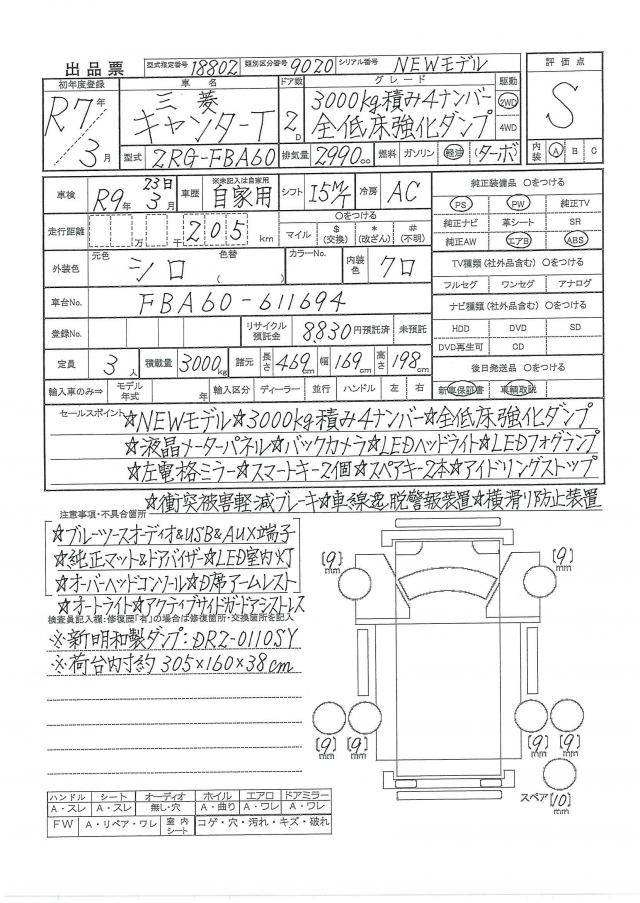 出品票 型式指定番号 18802 類別区分番号 9020 シリアル番号 NEWモデル
初年度登録 車名 ドア数 グレード 駆動 評価点
R7年/3月 三菱 キャンターT 2D 3000kg積み4ナンバー 2WD S
全低床強化ダンプ 4WD
型式 2RG-FBA60 排気量 2990cc 燃料 ガソリン 軽油 ターボ 内装 A B C
車検 R9年 23日 3月 車歴 ※未記入は自家用 自家用 シフト I5M/T 冷房 AC 純正装備品 〇をつける
PS PW 純正TV
走行距離 万 千 205 km 〇をつける
マイル $(交換) *(改ざん) #(不明) 純正ナビ 革シート SR
純正AW エアB ABS
外装色 元色 シロ 色替 ( カラーNo. 内装色 クロ TV種類(社外品含む) 〇をつける
フルセグ ワンセグ アナログ
車台No. FBA60-611694 ナビ種類(社外品含む) 〇をつける
登録No. リサイクル預託金 8,830 円預託済 未預託 HDD DVD SD
DVD再生可 CD
定員 3人 積載量 3000kg 諸元 長さ 469cm 幅 169cm 高さ 198cm 後日発送品 〇をつける
輸入車のみ⇒ モデル年式 年 輸入区分 ディーラー 並行 ハンドル 左 右 新車保証書 車輌取説
セールスポイント ☆NEWモデル☆3000kg積み4ナンバー☆全低床強化ダンプ
☆液晶メーターパネル☆バックカメラ☆LEDヘッドライト☆LEDフォグランプ
☆左電格ミラー☆スマートキー2個☆スペアキー2本☆アイドリングストップ
☆衝突被害軽減ブレーキ☆車線逸脱警報装置☆横滑り防止装置
注意事項・不具合箇所
☆ブルーツースオーディオ&USB&AUX端子
☆純正マット&ドアバイザー☆LED室内灯
☆オーバーヘッドコンソール☆D席アームレスト
☆オートライト☆アクティブサイドガードアシストレス
検査員記入欄:修復歴「有」の場合は修復箇所・交換箇所を記入
※新明和製ダンプ:DR2-0110SY
※荷台内寸約305×160×38cm
[9]mm [9]mm
[9]mm [9]mm [9]mm [9]mm
スペア [10]mm
ハンドル シート オーディオ ホイル エアロ ドアミラー
A・スレ A・スレ 無し・穴 A・曲り A・ワレ A・ワレ
FW A・リペア・ワレ 室内シート コゲ・穴・汚れ・キズ・破れ